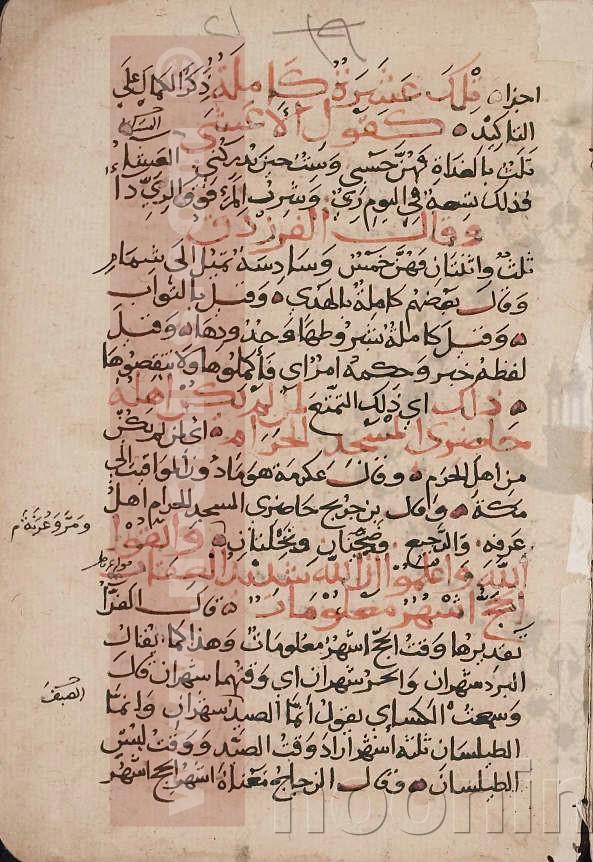 اجزا ۝ تلك عشرة كاملة ذكر الكمال على
التاكيد ۝ كقول الاعشى
ثلث بالغداة فهن حسبي وست حين يدركني العشاء
فذلك تسعة في اليوم ريي وشرب المرء فوق الري داء
وقال الفرزدق
ثلث واثنتان فهن خمس وسادسة تميل الى شمام
وقال بعضهم كاملة بالهدي ۝ وقيل بالثواب
۝ وقيل كاملة بشروطها وحدودها ۝ وقيل
لفظه خبر وحكمه امر اي فأكملوها ولا تنقصوها
۝ ذلك اي ذلك التمتع لمن لم يكن اهله
حاضري المسجد الحرام ۝ اي لمن لم يكن
من اهل الحرم ۝ وقال عكرمة هو ما دون المواقيت الى
مكة ۝ وقال بن جريج حاضري المسجد الحرام اهل
عرفه والرجيع وضجنان ونخلتان ۝ واتقوا
ومر وعرنة م
الله واعلموا ان الله شديد العقاب
الحج اشهر معلومات ۝ قال الفرا
تقديرها وقت الحج اشهر معلومات وهذا كما يقال
البرد شهران والحر شهران اي وقتهما شهران قال
الصيف
وسمعت الكساي يقول انما الصيد شهران وانما
الطيلسان ثلثة اشهر اراد وقت الصيد ووقت لبس
الطيلسان ۝ وقال الزجاج معناه اشهر الحج اشهر
noonin